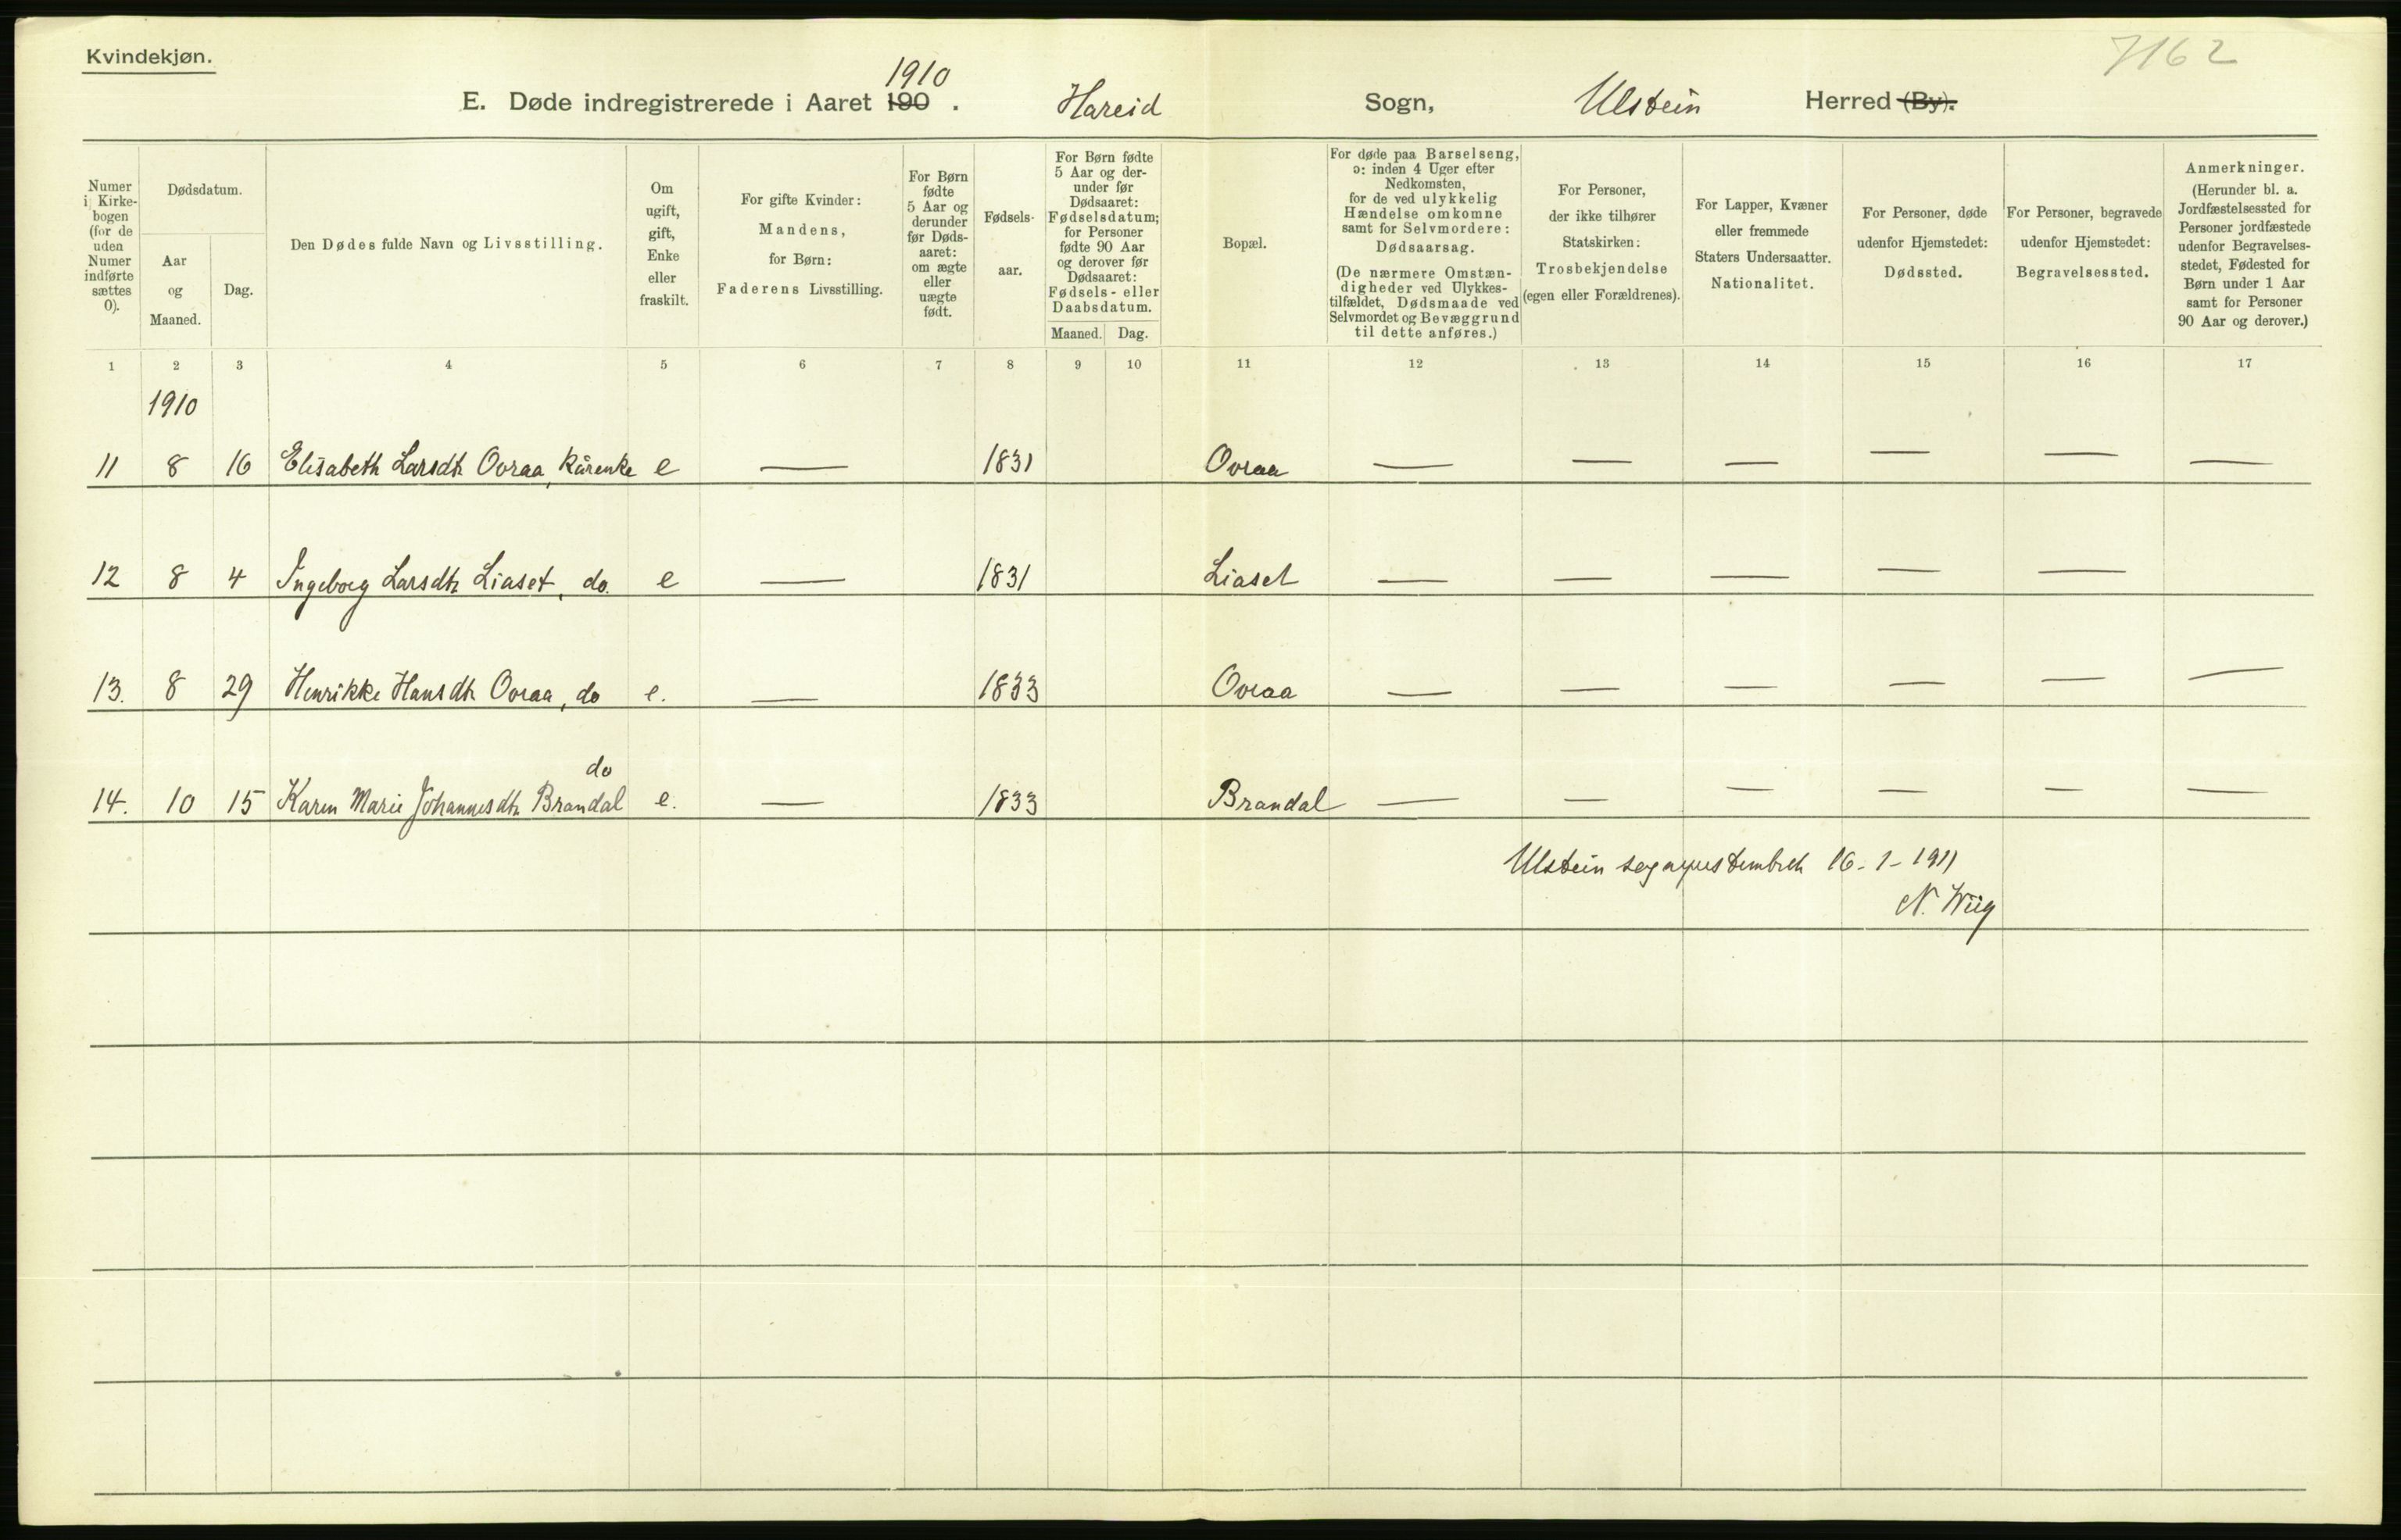 Kvindekjøn.
7162
1910
E. Døde indregistrerede i Aaret 190 . Hareid Sogn, Ulstein Herred (By).
Numer
i Kirke-
bogen
(for de
uden
Numer
indførte
sættes
0).
Dødsdatum.
Aar
og
Maaned.
Dag.
Den Dødes fulde Navn og Livsstilling.
Om
ugift,
gift,
Enke
eller
fraskilt.
For gifte Kvinder:
Mandens,
for Børn:
Faderens Livsstilling.
For Børn
fødte
5 Aar og
derunder
før Døds-
aaret:
om ægte
eller
uægte
født.
Fødsels-
aar.
For Børn fødte
5 Aar og der-
under før
Dødsaaret:
Fødselsdatum;
for Personer
fødte 90 Aar
og derover før
Dødsaaret:
Fødsels- eller
Daabsdatum.
Maaned. Dag.
Bopæl.
For døde paa Barselseng,
ɔ: inden 4 Uger efter
Nedkomsten,
for de ved ulykkelig
Hændelse omkomne
samt for Selvmordere:
Dødsaarsag.
(De nærmere Omstæn-
digheder ved Ulykkes-
tilfældet, Dødsmaade ved
Selvmordet og Bevæggrund
til dette anføres.)
For Personer,
der ikke tilhører
Statskirken:
Trosbekjendelse
(egen eller Forældrenes).
For Lapper, Kvæner
eller fremmede
Staters Undersaatter.
Nationalitet.
For Personer, døde
udenfor Hjemstedet:
Dødssted.
For Personer, begravede
udenfor Hjemstedet:
Begravelsessted.
Anmerkninger.
(Herunder bl. a.
Jordfæstelsessted for
Personer jordfæstede
udenfor Begravelses-
stedet, Fødested for
Børn under 1 Aar
samt for Personer
90 Aar og derover.)
1 2 3 4 5 6 7 8 9 10 11 12 13 14 15 16 17
1910
11 8 16 Elisabeth Larsdtr Ovraa, Kårenke e — 1831 Ovraa — — — — — —
12 8 4 Ingeborg Larsdtr Liaset, do. e — 1831 Liaset — — — — —
13. 8 29 Henrikke Hansdtr Ovraa, do e. — 1833 Ovraa — — — — — —
do
14. 10 15 Karen Marie Johannesdtr Brandal e. — 1833 Brandal — — — — — —
Ulstein 16-1-1911
N. Wiig